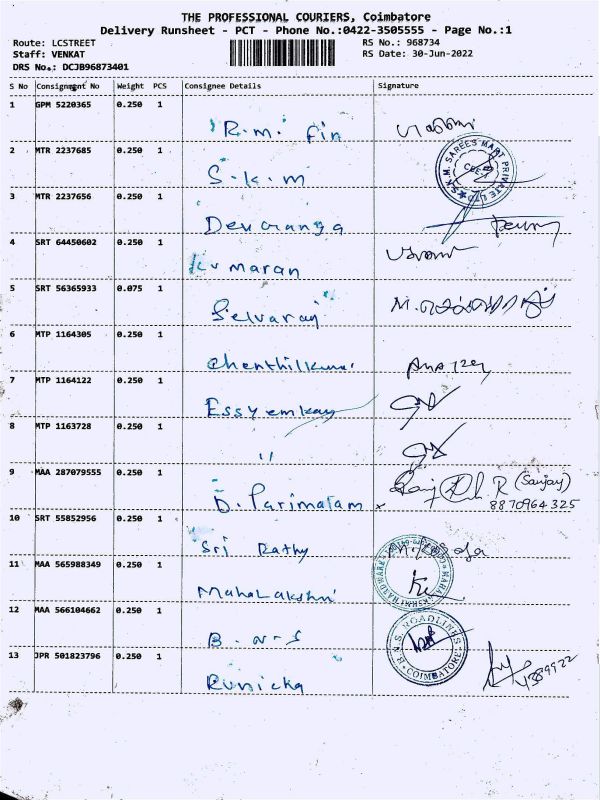 THE PROFESSIONAL COURIERS, Coimbatore
Delivery Runsheet - PCT - Phone No.:0422-3505555 - Page No.:1
Route: LCSTREET
RS No.: 968734
Staff: VENKAT
RS Date: 30-Jun-2022
DRS No.: DCJB96873401
S No Consignment No Weight PCS Consignee Details Signature
1 GPM 5220365 0.250 1
R.m. fin
2 MTR 2237685 0.250 1
S.k.m
S.K.M. SAREES MART PRIVATE LTD
3 MTR 2237656 0.250 1
Devaranga
4 SRT 64450602 0.250 1
Kumaran
5 SRT 56365933 0.075 1
Selvaraj
6 MTP 1164305 0.250 1
Chenthilkumar
7 MTP 1164122 0.250 1
Essyemkay
8 MTP 1163728 0.250 1
"
9 MAA 287079555 0.250 1
D. Parimalam
R (Sanjay)
8870964325
10 SRT 55852956 0.250 1
Sri Rathy
11 MAA 565988349 0.250 1
MahaLakshmi
12 MAA 566104662 0.250 1
B.N.S
B.N.S. ROADLINES
COIMBATORE
13 JPR 501823796 0.250 1
Runicka